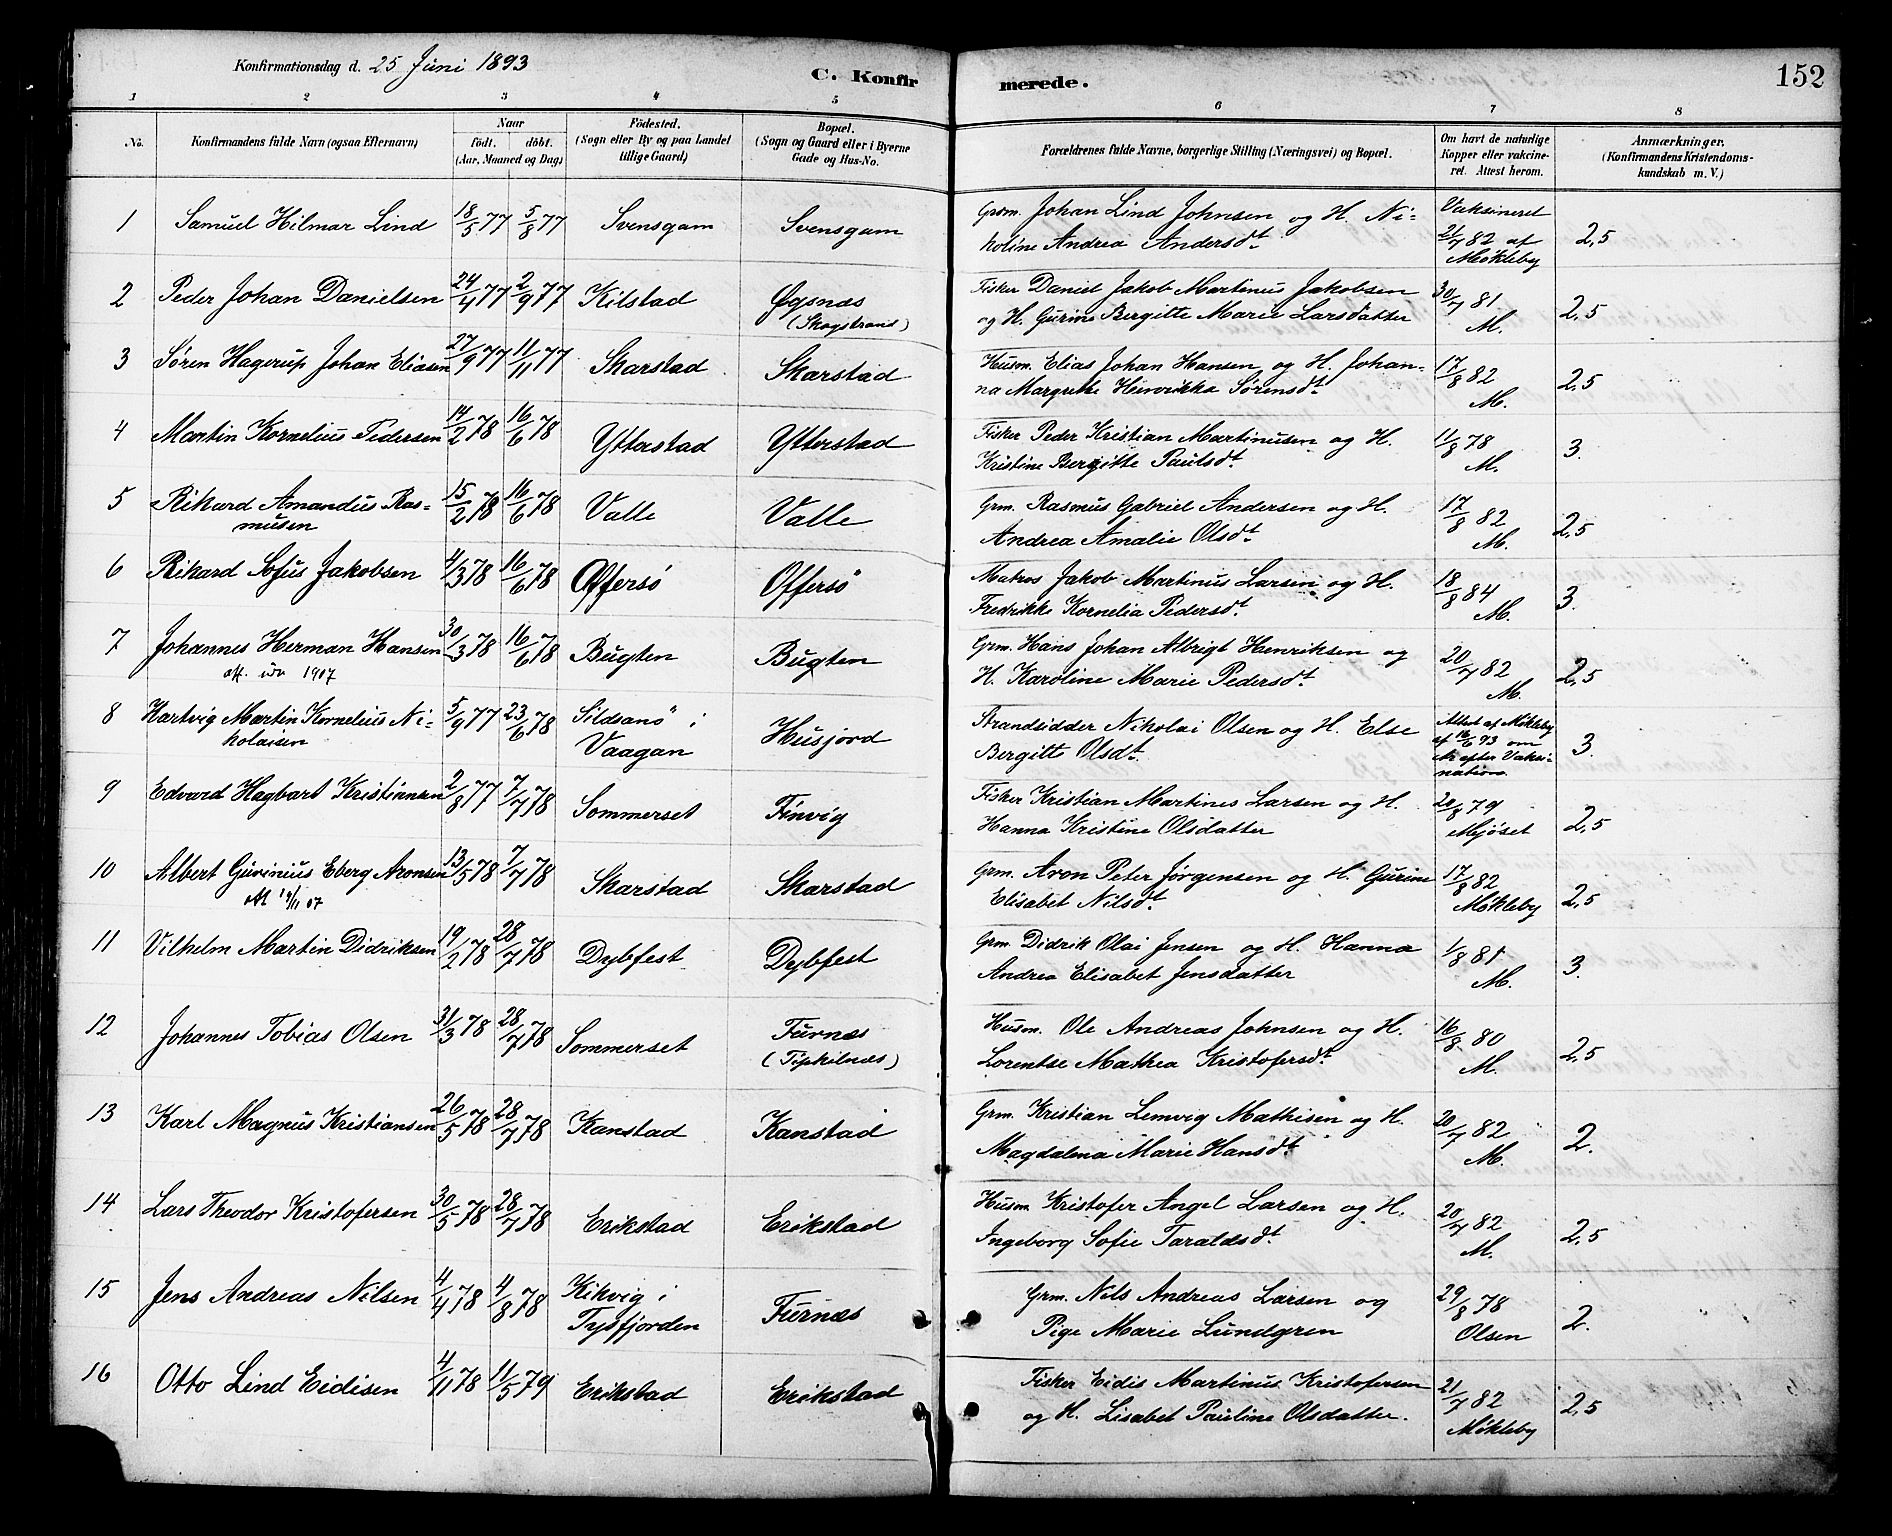 Konfirmationsdag d. 25 Juni 1893
C. Konfir
merede.
152
1 2 3 4 5 6 7 8
No.
Konfirmandens fulde Navn (ogsaa Efternavn)
Naar
födt. döbt.
(Aar, Maaned og Dag)
Födested.
(Sogn eller By og paa Landet
tillige Gaard)
Bopæl.
(Sogn og Gaard eller i Byerne
Gade og Hus-No.
Forældrenes fulde Navne, borgerlige Stilling (Næringsvei) og Bopæl.
Om havt de naturlige
Kopper eller vakcine-
ret. Attest herom.
Anmærkninger.
(Konfirmandens Kristendoms-
kundskab m. V.)
1 Samuel Hilmar Lind 18/5 77 5/8 77 Svensgam Svensgam Grdm. Johan Lind Johnsen og H. Ni- Vaksineret
koline Andrea Andersdt. 21/7 82 af 2,5
Møkleby
2 Peder Johan Danielsen 24/4 77 2/9 77 Kilstad Øgsnæs Fisker Daniel Jakob Martinus Jakobsen 30/7 81 2,5
(Skogstrand) og H. Gurine Bergitte Marie Larsdatter M.
3 Søren Hagerup Johan Eliasen 27/9 77 11/11 77 Skarstad Skarstad Husm. Elias Johan Hansen og H. Johan- 17/8 82 2,5
na Margrethe Heinrikka Sørensdt. M.
4 Martin Kornelius Pedersen 14/2 78 16/6 78 Ytterstad Ytterstad Fisker Peder Kristian Martinusen og H. 11/8 78 3.
Kristine Bergitte Paulsdt. M.
5 Rikard Amandus Ras- 15/2 78 16/6 78 Valle Valle Grm. Rasmus Gabriel Andersen og H. 17/8 82 2,5
musen Andrea Amalie Olsdt. M.
6 Rikard Sofus Jakobsen 4/3 78 16/6 78 Offersö Offersö Matros Jakob Martinus Larsen og H. 18/8 84 3.
Fredrikke Kornelia Pedersdt. M.
7 Johannes Herman Hansen 30/3 78 16/6 78 Bugten Bugten Grm. Hans Johan Albrigt Henriksen og 20/7 82 2,5
1907 H. Karoline Marie Pedersdt. M.
8 Hartvig Martin Kornelius Ni- 5/9 77 23/6 78 Sildsanö i Husjord Strandsidder Nikolai Olsen og H. Else Attest af Møkleby
kolaisen Vaagan Bergitte Olsdt. af 16/6 93 om 3.
Ar efter Vaksi-
nation.
9 Edvard Hagbart Kristiansen 2/8 77 7/7 78 Sommerset Finvig Fisker Kristian Martines Larsen og H. 20/8 79 2,5
Hanna Kristine Olsdatter Mjøset
10 Albert Gurinius Eberg Aronsen 13/5 78 7/7 78 Skarstad Skarstad Grm. Aron Peter Jørgensen og H. Gurine 17/8 82 2,5
07 Elisabet Nilsdt. Møkleby
11 Vilhelm Martin Didriksen 19/2 78 28/7 78 Dybfest Dybfest Grm. Didrik Olai Jensen og H. Hanna 1/8 81 3.
Andrea Elisabet Jensdatter M.
12 Johannes Tobias Olsen 31/3 78 28/7 78 Sommerset Furnæs Husm. Ole Andreas Johnsen og H. 16/8 80 2,5
(Tipkilnæs) Lorentse Mathea Kristofersdt. M.
13 Karl Magnus Kristiansen 26/5 78 28/7 78 Kanstad Kanstad Grm. Kristian Lemvig Mathisen og H. 20/7 82 2.
Magdalena Marie Hansdt. M.
14 Lars Theodor Kristofersen 30/5 78 28/7 78 Erikstad Erikstad Husm. Kristofer Angel Larsen og H. 20/7 82 2,5
Ingeborg Sofie Taraldsdt. M.
15 Jens Andreas Nilsen 4/4 78 4/8 78 Kikvig i Furnæs Grm. Nils Andreas Larsen og 29/8 78 2.
Tysfjorden Pige Marie Lundgren Olsen
16 Otto Lind Eidisen 4/11 78 11/5 79 Erikstad Erikstad Fisker Eidis Martinus Kristofersen 21/7 82 2,5
og H. Lisabet Pauline Olsdatter. Møkleby